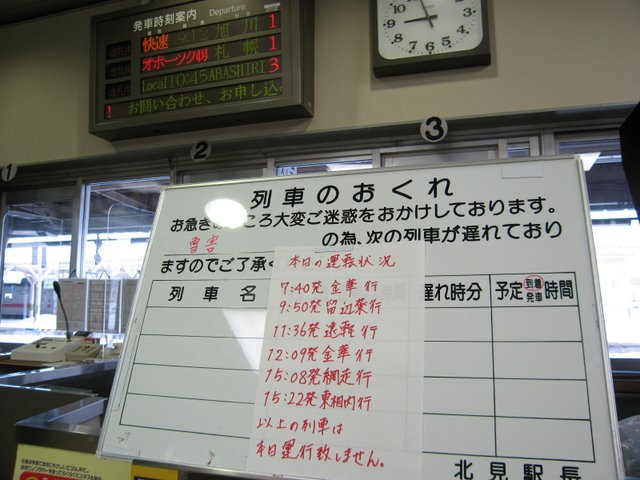 発車時刻案内 Departure
改札中 快速 9:42 旭川 1
改札中 オホーツク4号 札幌 1
改札中 Local 10:45 ABASHIRI 3
! お問い合わせ、お申し込
1
2
3
列車のおくれ
お急ぎのところ大変ご迷惑をおかけしております。
雪害 の為、次の列車が遅れており
ますのでご了承く
列車名 時間 遅れ時分 予定 到着 発車 時間
本日の運転状況
7:40発 金華行
9:50発 留辺蘂行
11:36発 遠軽行
12:09発 金華行
15:08発 網走行
15:22発 東相内行
以上の列車は
本日運行致しません。
北見駅長